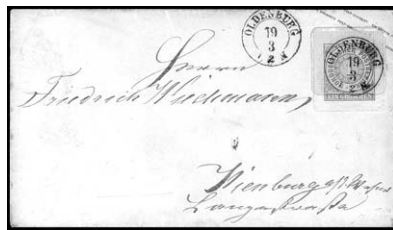 OLDENBURG
19
3
2
OLDENBURG
19
3
2
EIN GROSCHEN
Herrn
Friedrich Wiechmann,
Nienburg a/d. Weser
Langestrasse